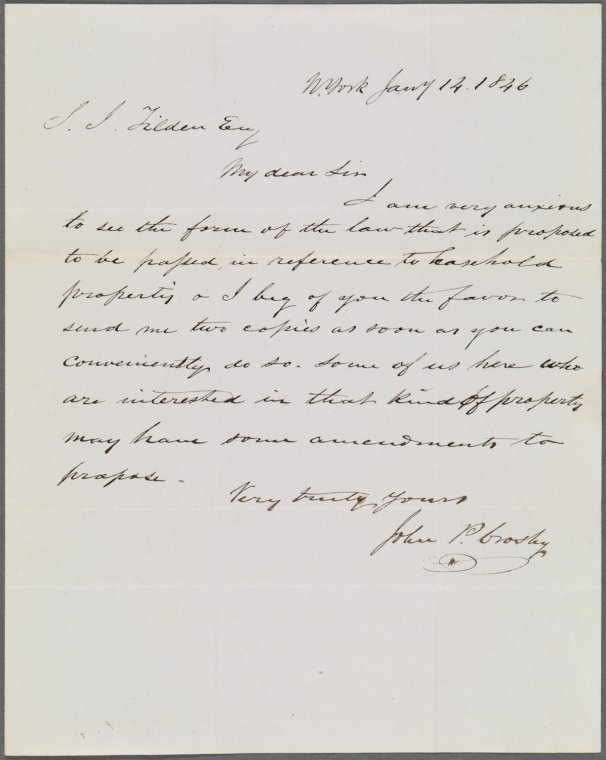 N. York Jany 12. 1846
S. J. Tilden Esq
My dear Sir
I am very anxious
to see the form of the law that is proposed
to be passed, in reference to leasehold
property & I beg of you the favor to
send me two copies as soon as you can
conveniently do so. Some of us here who
are interested in that kind of property
may have some amendments to
propose.
Very truly Yours
John P. Crosby